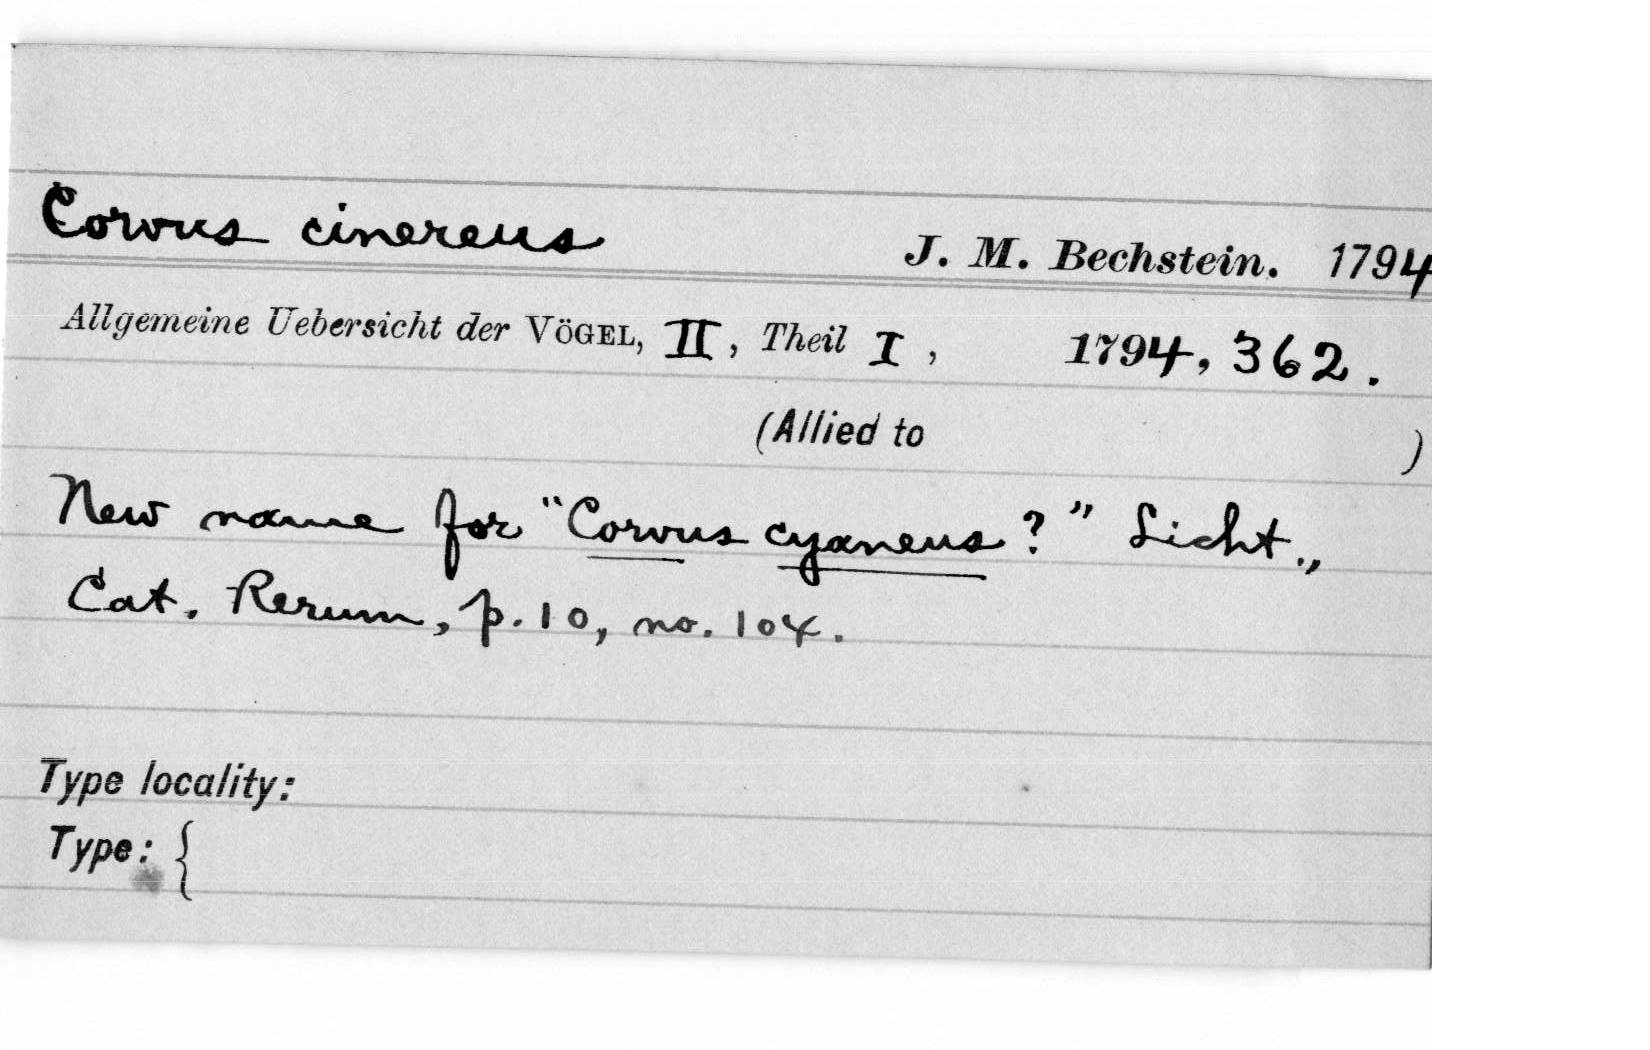 Corvus cinereus J. M. Bechstein. 1794
Allgemeine Uebersicht der VÖGEL, II, Theil I, 1794, 362.
(Allied to )
New name for "Corvus cyaneus?" Licht.,
Cat. Rerum, p. 10, no. 104.
Type locality:
Type: {